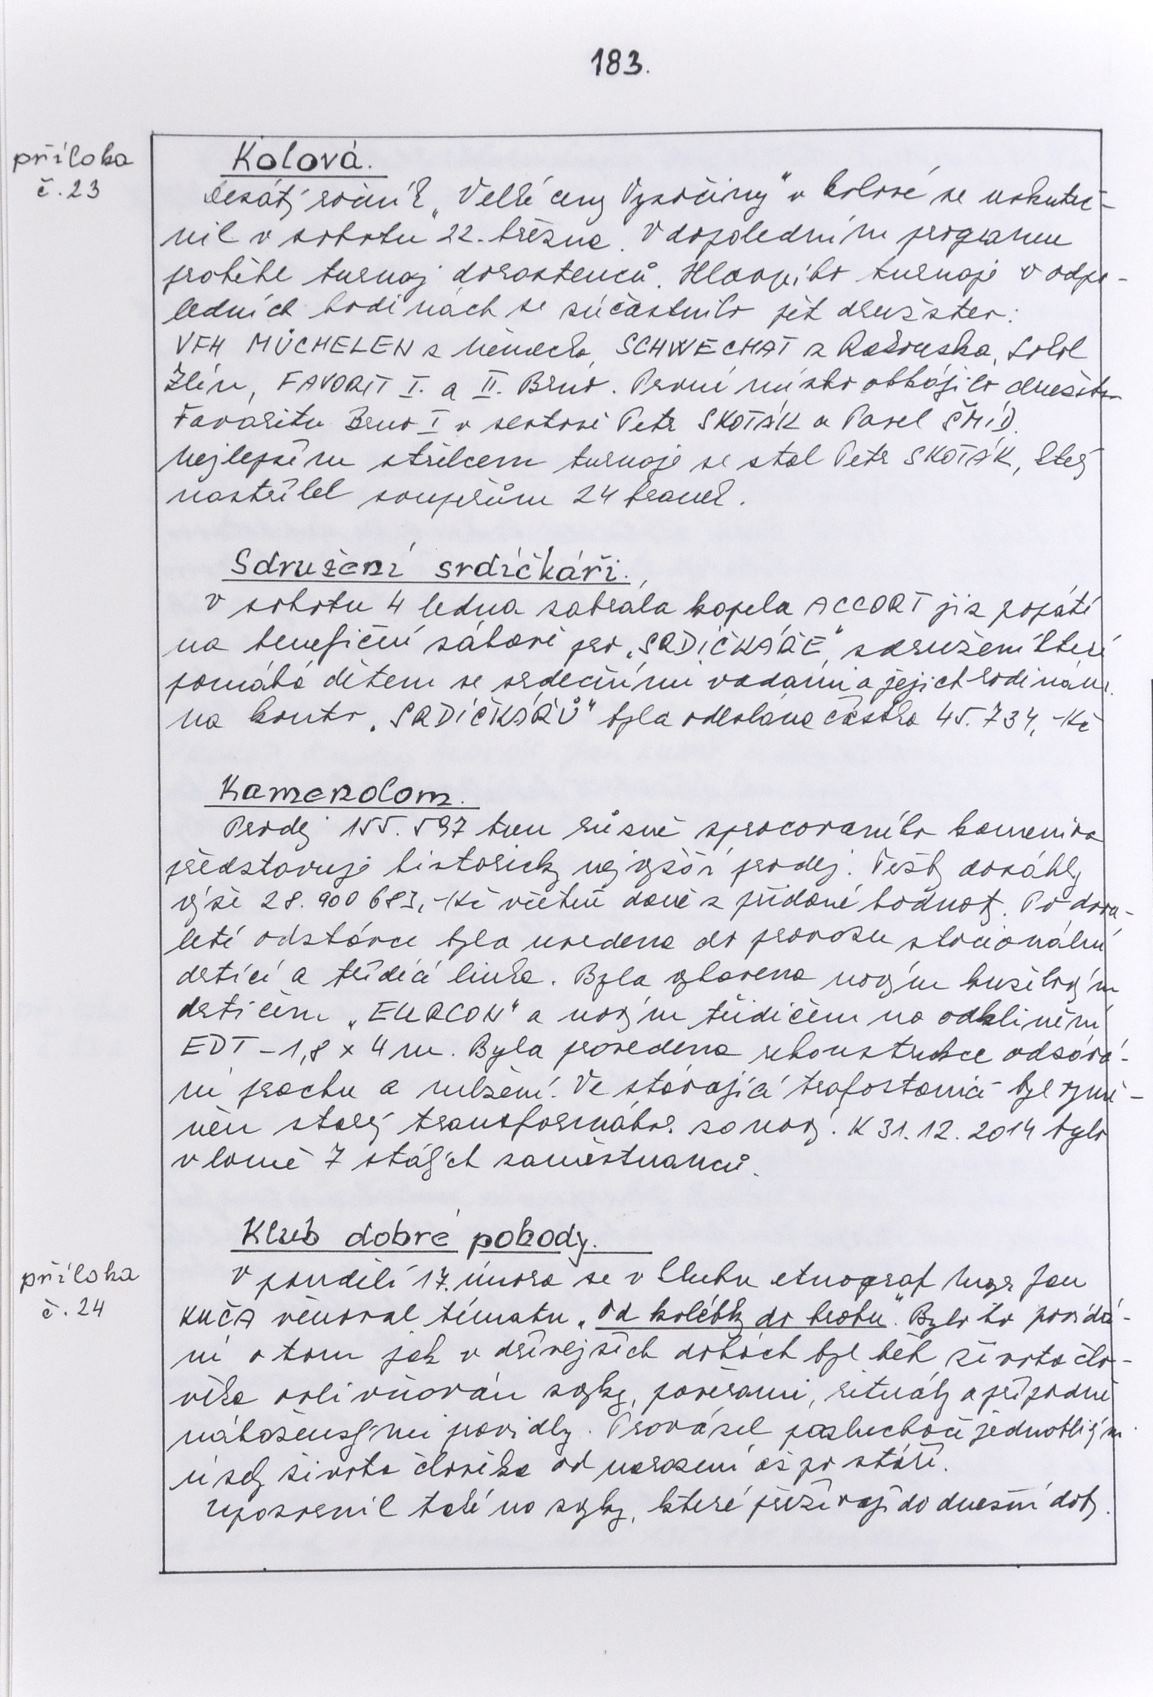 183.
příloha
č. 23
Kolová.
Desátý ročník „Velké ceny Vysočiny" v kolové se uskuteč-
nil v sobotu 22. března. V dopoledním programu
proběhl turnaj dorostenců. Hlavního turnaje v odpo-
ledních hodinách se zúčastnilo pět družstev:
VFH MÜCHELEN z Německa, SCHWECHAT z Rakouska, Sokol
Zlín, FAVORIT I. a II. Brno. První místo obhájilo družstvo
Favoritu Brno I v sestavě Petr SKOTÁK a Pavel ŠMÍD.
Nejlepším střelcem turnaje se stal Petr SKOTÁK, který
nastřílel soupeřům 24 branek.
Sdružení srdíčkáři.
V sobotu 4 ledna zahrála kapela ACCORT již popáté
na benefiční zábavě pro „SRDÍČKÁŘE", sdružení které
pomáhá dětem se srdečními vadami a jejich rodinám.
na konto „SRDÍČKÁŘŮ" byla odeslána částka 45.734,-Kč
Kamenolom.
Prodej 155.597 tun různě zpracovaného kameniva
představuje historicky nejvyšší prodej. Tržby dosáhly
výše 28.900 683,-Kč včetně daně z přidané hodnoty. Po dvou-
leté odstávce byla uvedena do provozu stacionární
drtící a třídící linka. Byla vybavena novým kuželovým
drtičem „EURCON" a novým třídičem na odhlinění
EDT-1,8 x 4 m. Byla provedena rekonstrukce odsává-
ní prachu a mlžení. Ve stávající trafostanici byl vymě-
něn starý transformátor za nový. K 31.12.2014 bylo
v lomě 7 stálých zaměstnanců.
Klub dobré pohody.
příloha
č. 24
V pondělí 17. února se v klubu etnograf Mgr Jan
KUČA věnoval tématu „Od kolébky do hrobu". Bylo to povídá-
ní o tom jak v dřívějších dobách byl běh života člo-
věka ovlivňován zvyky, pověrami, rituály a případně
náboženskými pravidly. Provázel posluchače jednotlivými
úseky života člověka od narození až po stáří.
Upozornil také na zvyky, které přežívají do dnešní doby.